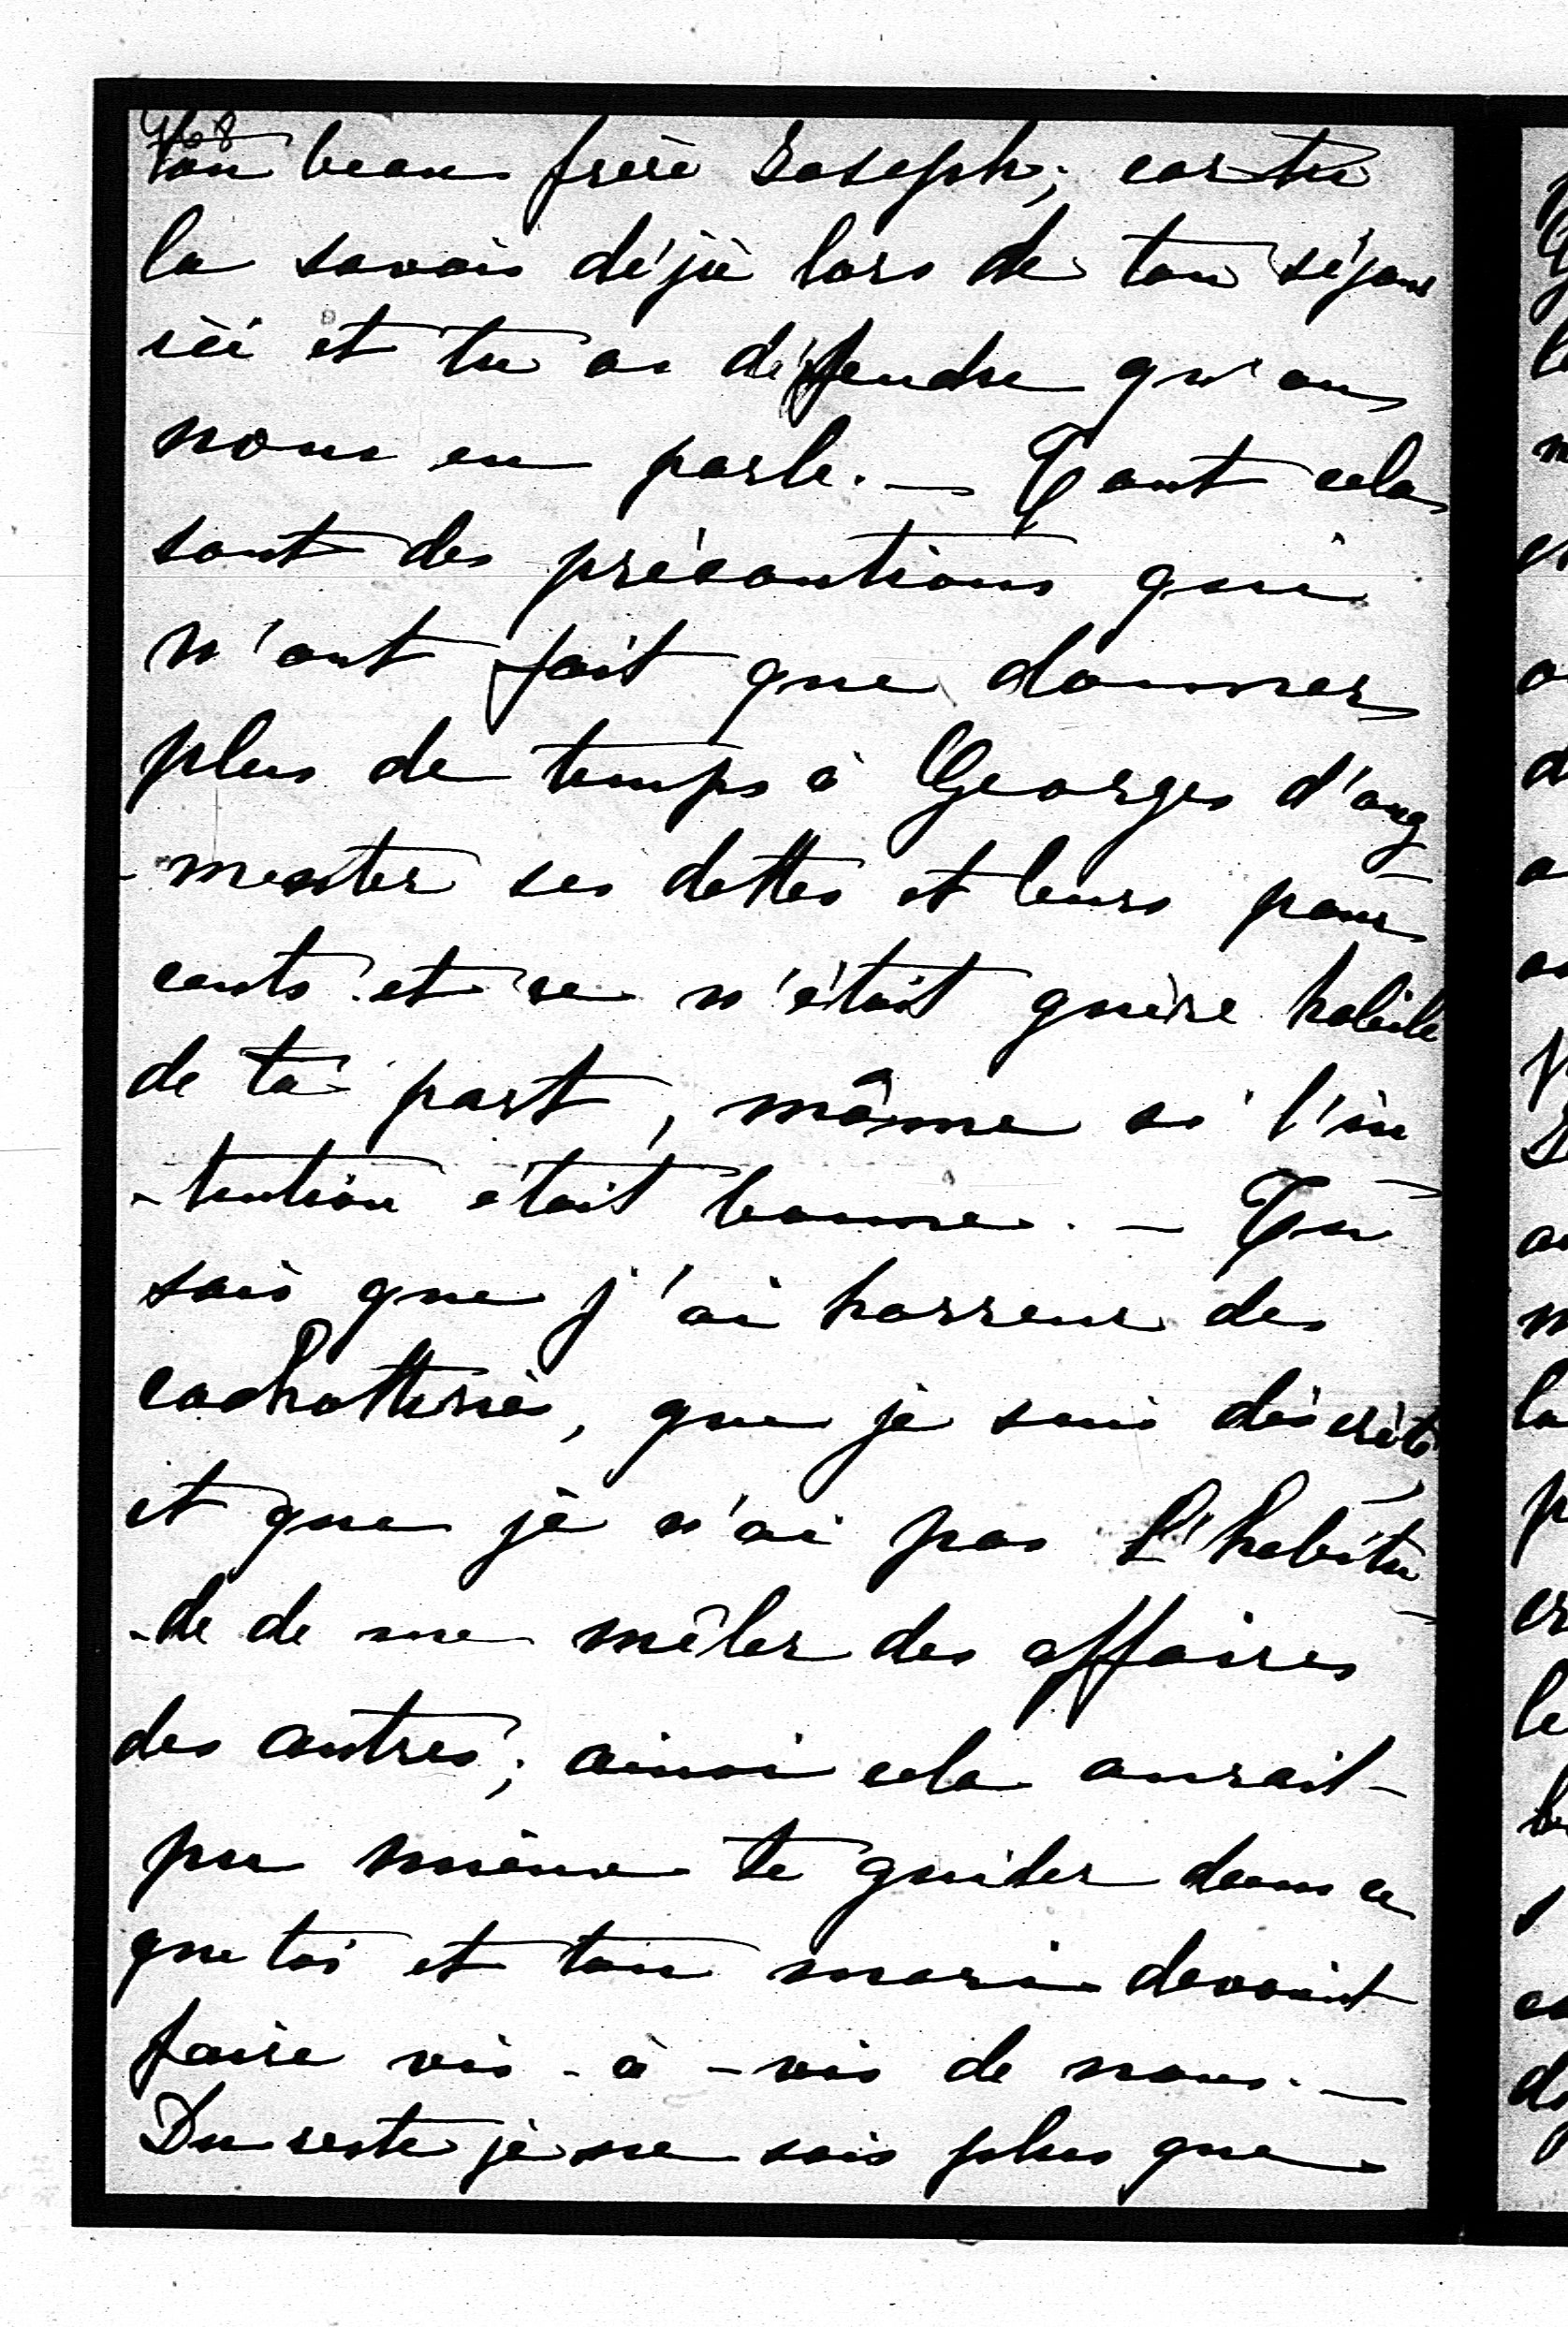 968
ton beau frère Joseph; car tu
la savais déjà lors de ton séjour
ici et tu as défendue qu'on
nous en parle. — Tout cela
sont des précautions qui
n'ont fait que donner
plus de temps à Georges d'aug
-menter ses dettes et leurs pour
cents et ce n'était guère habile
de ta part, même si l'in
-tention était bonne. — Tu
sais que j'ai horreur des
cachotteries, que je suis discrète,
et que je n'ai pas l'habitu
-de de me mêler des affaires
des autres; ainsi cela aurait
pu même te guider dans ce
que toi et ton mari devait
faire vis-à-vis de nous. —
Du reste je ne sais plus que